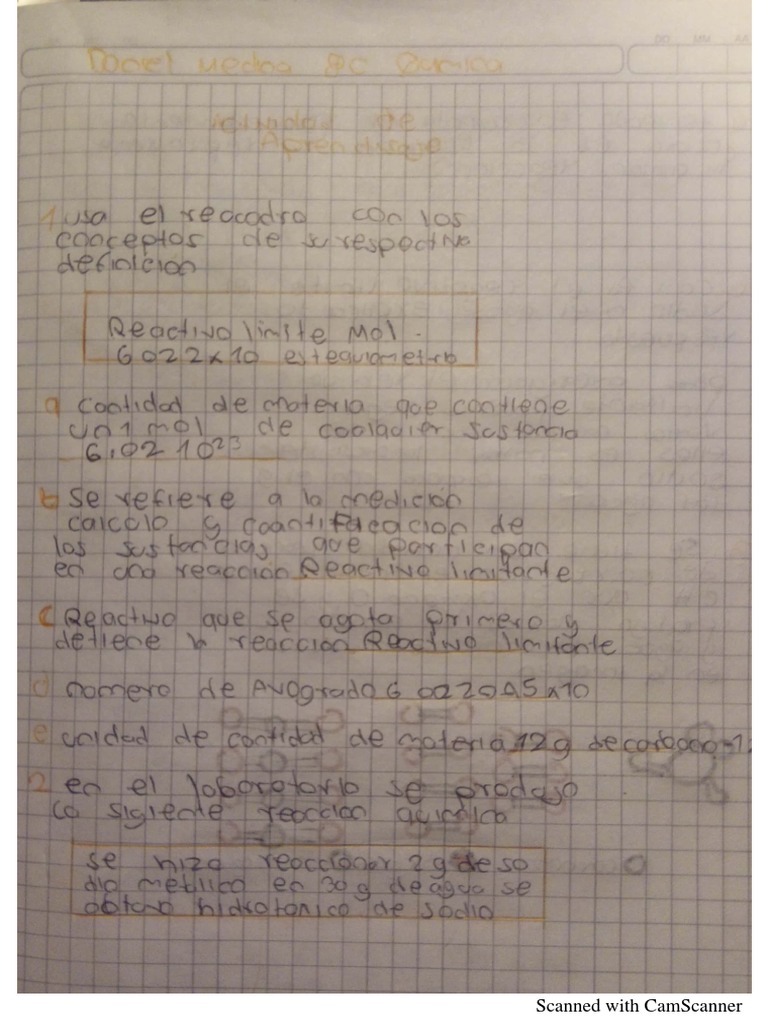 Daniel Medina 8c Quimica
Actividad de
Aprendisaje
1 usa el recoadro con los
conceptos de su respectiva
definicion
Reactivo limite Mol -
6022x10 estequiometria
a cantidad de materia que contiene
un 1 mol de cualquier sustancia
6.02 10²³
b Se refiere a la medicion
calculo y cuantificacion de
las sustancias que participan
en una reaccion Reactivo limitante
c Reactivo que se agota primero y
detiene la reaccion Reactivo limitante
d nomero de Avogrado 6 02204.5x10
e unidad de cantidad de materia 12g de carbono-1
2 en el laboratorio se produjo
la sigiente reaccion quimica
se hizo reaccionar 2g de so
dio metlico en 30g de agua se
obtuvo hidrotonico de sodio
Scanned with CamScanner